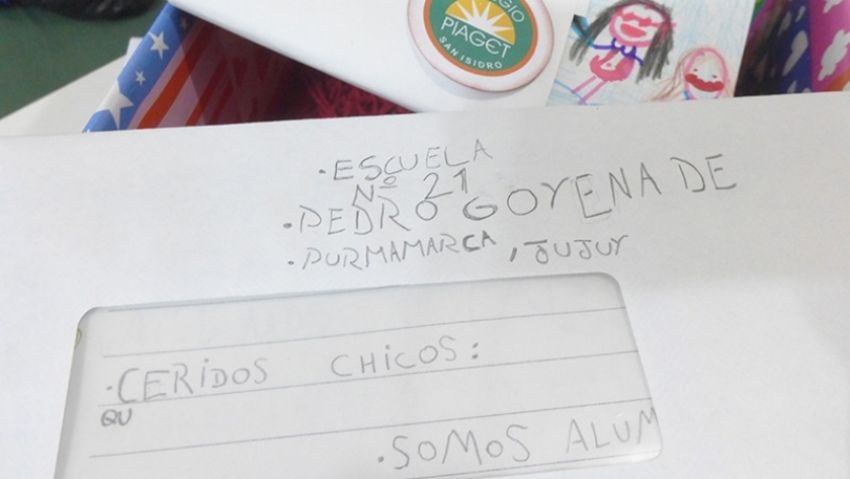 GIO
PIAGET
SAN ISIDRO
·ESCUELA
Nº 21
·PEDRO GOYENA DE
·PURMAMARCA, JUJUY
·CERIDOS CHICOS:
QU
·SOMOS ALUM